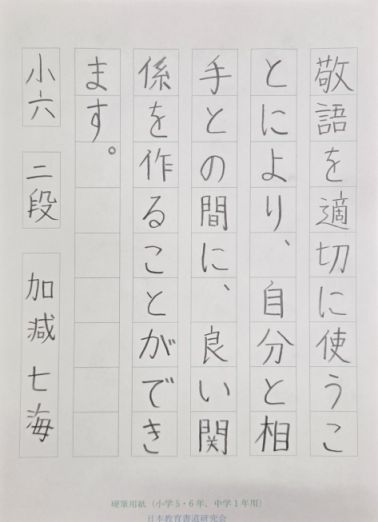 敬語を適切に使うこ
とにより、自分と相
手との間に、良い関
係を作ることができ
ます。
小六 二段 加減七海
硬筆用紙（小学5・6年、中学1年用）
日本教育書道研究会